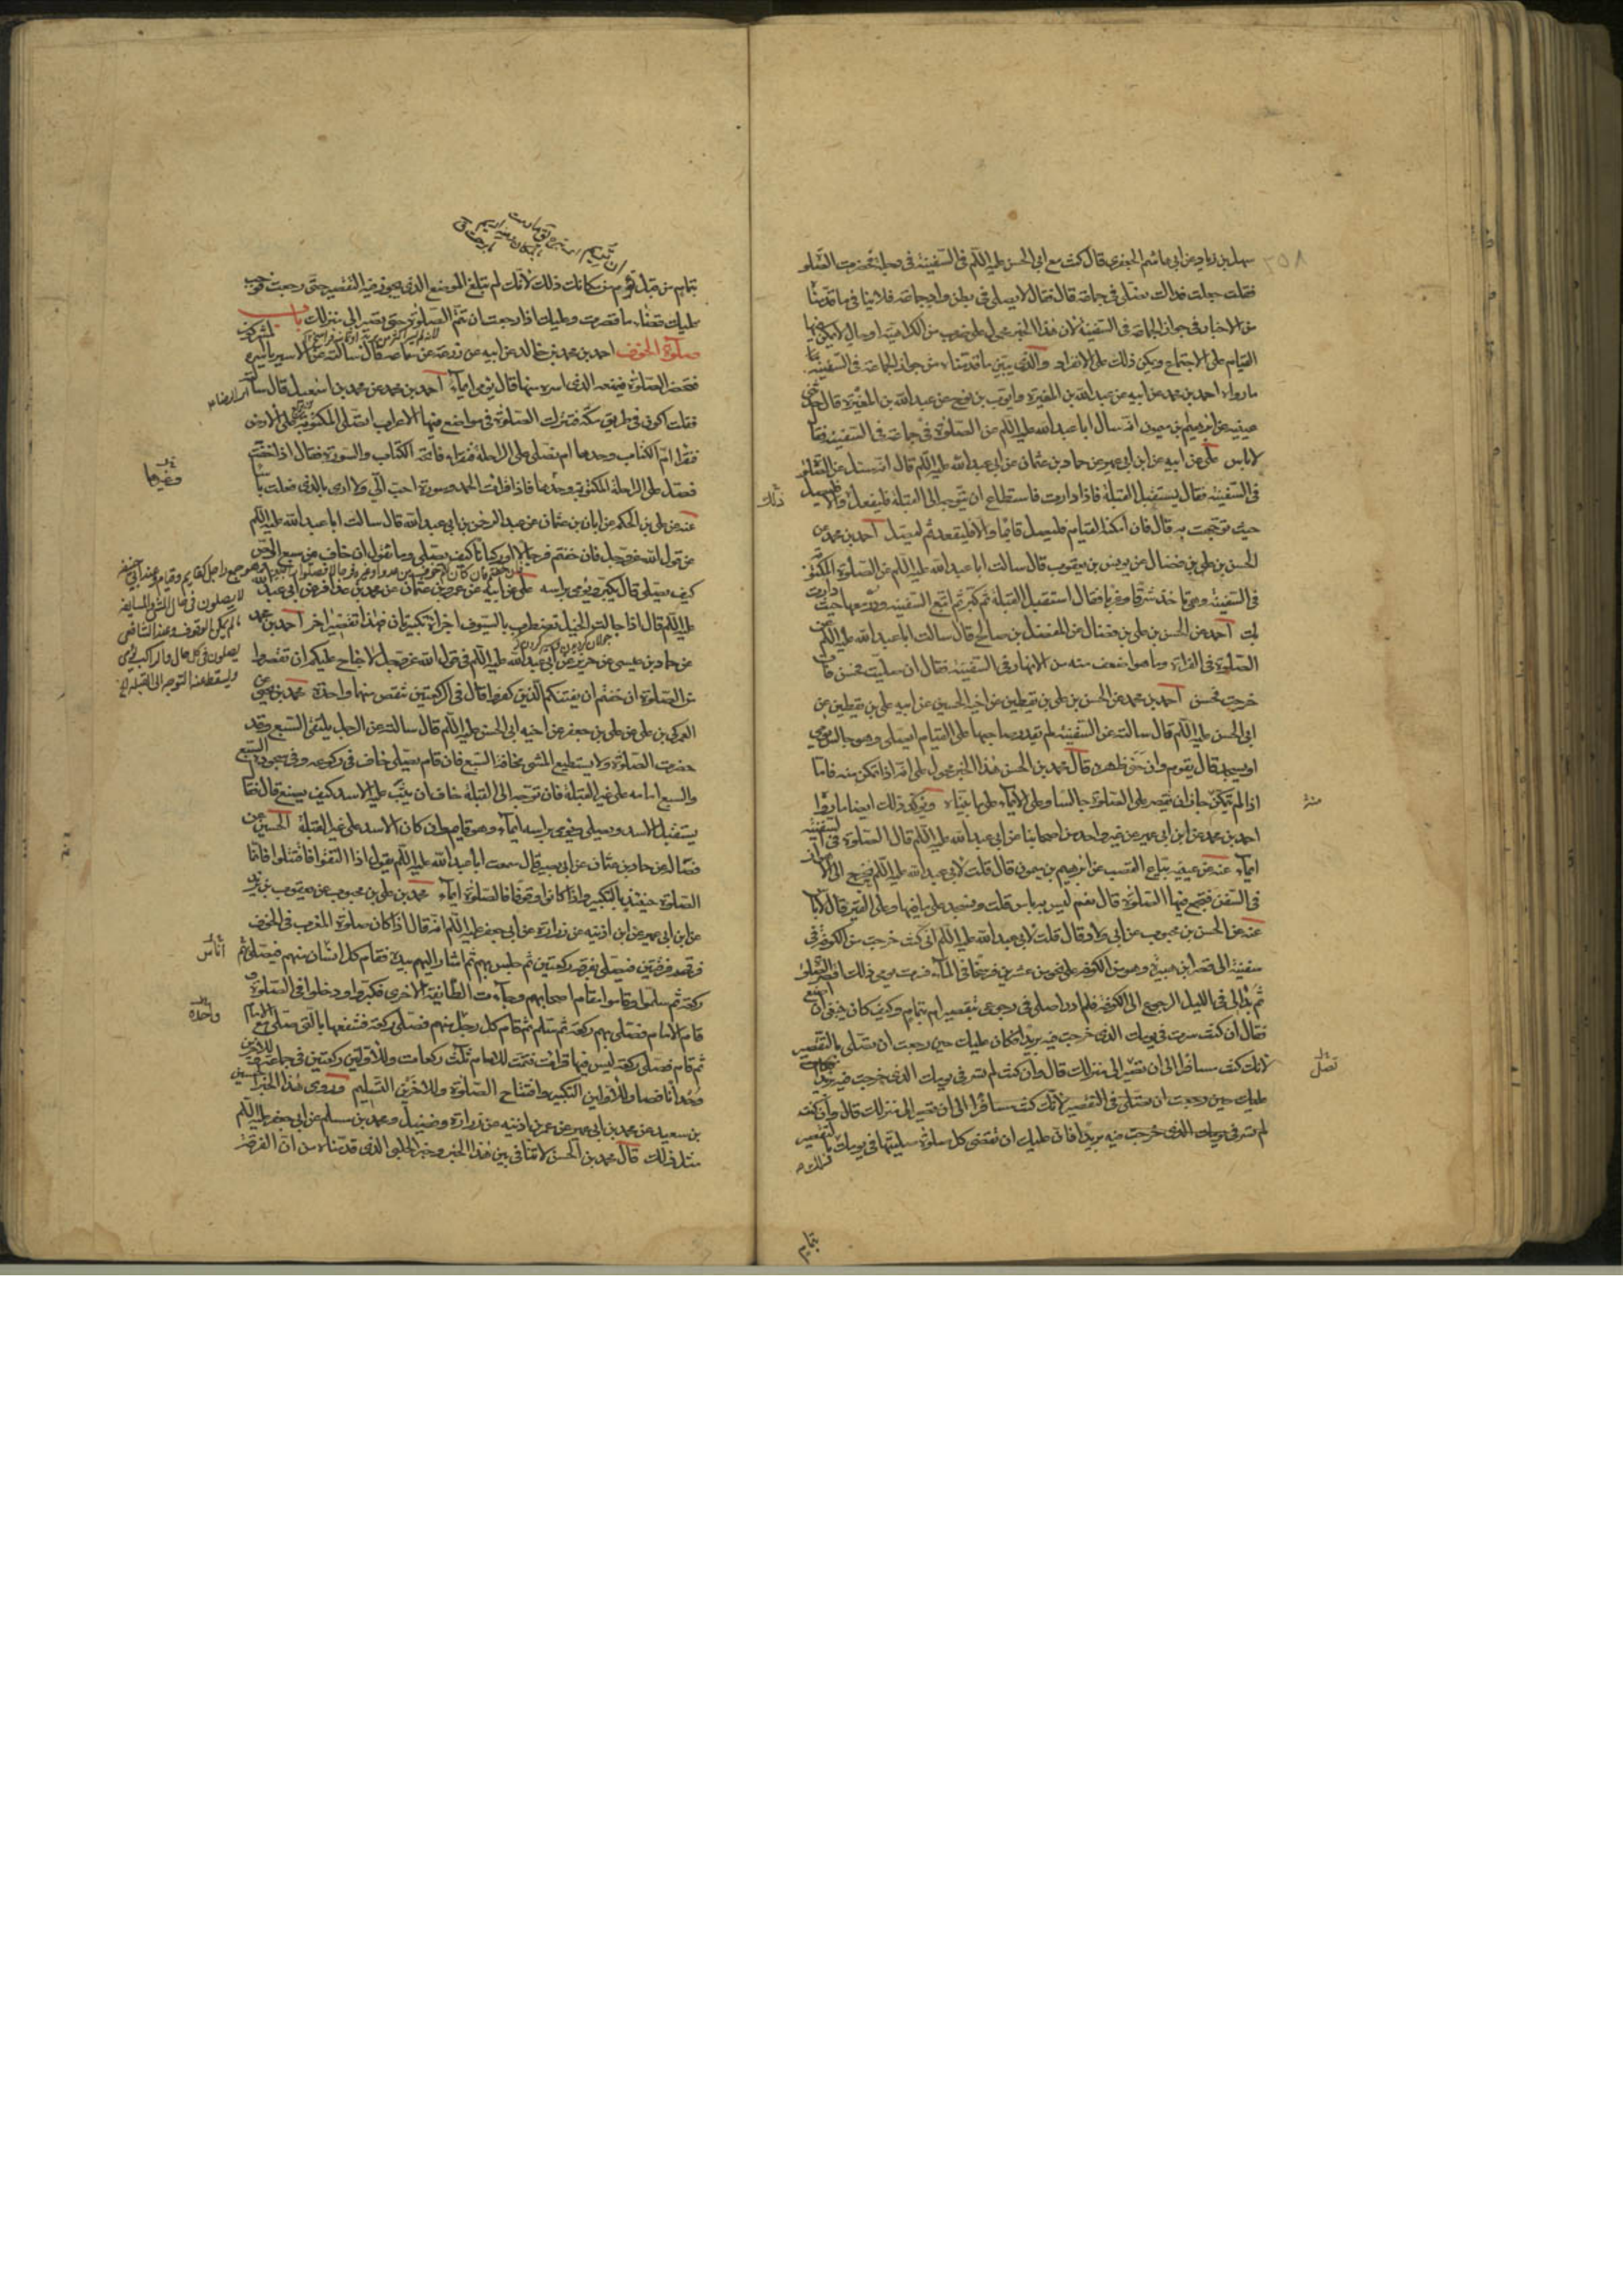 سهل بن زياد عن ابى هاشم الجعفرى قال كنت مع ابى الحسن عليه السلم فى السفينة فى دجلة فحضرت الصلوة
فقلت جعلت فداك نصلى فى جماعة قال فقال لا يصلى فى بطن واد جماعة فلا ينافى ما قدمنا
من الاخبار فى جواز الجماعة فى السفينة لان هذا الخبر محمول على ضرب من الكراهية او حال لا يمكن فيها
القيام على الاجتماع ويمكن ذلك على الانفراد والذى يبين ما قدمناه من جواز الجماعة فى السفينة
ما رواه احمد بن محمد عن ابيه عن عبد الله بن المغيرة وايوب بن نوح عن عبد الله بن المغيرة قال حدثنى
عيينه عن ابرهيم بن ميمون انه سال ابا عبد الله عليه السلم عن الصلوة فى جماعة فى السفينة فقال
لا باس على عن ابيه عن ابن ابى عمير عن حماد بن عثمان عن ابى عبد الله عليه السلم قال انه سئل عن الصلوة
فى السفينة فقال يستقبل القبلة فاذا دارت فاستطاع ان يتوجه الى القبلة فليفعل والا فليصل
حيث توجهت به قال فان امكنه القيام فليصل قايما والا فليقعد ثم ليصل احمد بن محمد عن
الحسن بن على بن فضال عن يونس بن يعقوب قال سالت ابا عبد الله عليه السلم عن الصلوة المكتوبة
فى السفينة وهى تاخذ شرقا وغربا فقال استقبل القبلة ثم كبر ثم اتبع السفينة ودر معها حيث دارت
بك احمد عن الحسن بن على بن فضال عن المفضل بن صالح قال سالت ابا عبد الله عليه السلم عن
الصلوة فى الفراة وما هو اضعف منه من الانهار فى السفينة فقال ان صليت فحسن وان
خرجت فحسن احمد بن محمد عن الحسن بن على بن يقطين عن اخيه الحسين عن ابيه على بن يقطين عن
ابى الحسن عليه السلم قال سالته عن السفينة لم يقدر صاحبها على القيام ايصلى وهو جالس يومى
او يسجد قال يقوم وان حنى ظهره قال محمد بن الحسن هذا الخبر محمول على انه اذا تمكن منه فاما
اذا لم يتمكن جاز ان يقتصر على الصلوة جالسا وعلى الايماء على ما بيناه ويؤكد ذلك ايضا ما رواه
احمد بن محمد عن ابن ابى عمير عن غير واحد من اصحابنا عن ابى عبد الله عليه السلم قال الصلوة فى السفينة
ايماء عنه عن عيينه بياع القصب عن ابرهيم بن ميمون قال قلت لابى عبد الله عليه السلم نخرج الى الاهواز
فى السفن فنجمع فيها الصلوة قال نعم ليس به باس قلت ونسجد على ما فيها وعلى القير قال لا باس
عنه عن الحسن بن محبوب عن ابى ولاد قال قلت لابى عبد الله عليه السلم انى كنت خرجت من الكوفة فى
سفينة الى قصر ابن هبيرة وهو من الكوفة على نحو من عشرين فرسخا فى الماء فسرت يومى ذلك اقصر الصلوة
ثم بدا لى فى الليل الرجوع الى الكوفة فلم ادر اصلى فى رجوعى بتقصير ام بتمام وكيف كان ينبغى ان اصنع
فقال ان كنت سرت فى يومك الذى خرجت فيه بريدا فكان عليك حين رجعت ان تصلى بالتقصير
لانك كنت مسافرا الى ان تصير الى منزلك قال وان كنت لم تسر فى يومك الذى خرجت فيه بريدا
عليك حين رجعت ان تصلى فى التقصير لانك كنت مسافرا الى ان تصير الى منزلك قال وان كنت
لم تسر فى يومك الذى خرجت فيه بريدا فان عليك ان تقضى كل صلوة صليتها فى يومك بالتقصير
ذلك
منه
تصل
بتمام
بتمام من قبل ان تريم من مكانك ذلك لانك لم تبلغ الموضع الذى يجوز فيه التقصير حتى رجعت فوجب
عليك قضاء ما قصرت وعليك اذا رجعت ان تتم الصلوة حتى تصير الى منزلك باب
صلوة الخوف احمد بن محمد بن خالد عن ابيه عن زرعة عن سماعه قال سالته عن الاسير ياسره المشركون
فتحضر الصلوة فيمنعه الذى اسره منها قال يومى ايماء احمد بن محمد عن محمد بن اسمعيل قال سالت
فقلت اكون فى طريق مكة فننزل للصلوة فى مواضع فيها الاعراب انصلى المكتوبة على الارض
فنقرا ام الكتاب وحدها ام نصلى على الراحلة فنقراء فاتحة الكتاب والسورة فقال اذا خفت
فصل على الراحلة المكتوبة وغيرها فاذا قرات الحمد وسورة احب الى ولا ارى بالذى فعلت باسا
عنه عن على بن الحكم عن ابان بن عثمان عن عبد الرحمن بن ابى عبد الله قال سالت ابا عبد الله عليه السلم
عن قول الله عز وجل فان خفتم فرجالا او ركبانا كيف يصلى وما يقول ان خاف من سبع او لص
كيف يصلى قال يكبر ويومى براسه على عن ابيه عن عمرو بن عثمان عن محمد بن عذافر عن ابى عبد الله
عليه السلم قال اذا جالت الخيل تضطرب بالسيوف اجزاه تكبيرتان فهذا تقصير اخر احمد بن محمد
عن حماد بن عيسى عن حريز عن ابى عبد الله عليه السلم فى قول الله عز وجل لا جناح عليكم ان تقصروا
من الصلوة ان خفتم ان يفتنكم الذين كفروا قال فى الركعتين تنقص منهما واحدة محمد بن يحيى عن
العمركى بن على عن على بن جعفر عن اخيه ابى الحسن عليه السلم قال سالته عن الرجل يلقى السبع وقد
حضرت الصلوة ولا يستطيع المشى مخافة السبع فان قام يصلى خاف فى ركوعه وفى سجوده السبع
والسبع امامه على غير القبلة فان توجه الى القبلة خاف ان يثب عليه الاسد كيف يصنع قال فقال
يستقبل الاسد ويصلى ويومى براسه ايماء وهو قايم وان كان الاسد على غير القبلة الحسين عن
فضالة عن حماد بن عثمان عن ابى بصير قال سمعت ابا عبد الله عليه السلم يقول اذا التقوا فاقتتلوا فانما
الصلوة حينئذ بالتكبير واذا كانوا وقوفا فالصلوة ايماء محمد بن على بن محبوب عن يعقوب بن يزيد
عن ابن ابى عمير عن ابن اذينه عن زرارة عن ابى جعفر عليه السلم انه قال اذا كان صلوة المغرب فى الخوف
فرقهم فرقتين فيصلى بفرقة ركعتين ثم جلس بهم ثم اشار اليهم بيده فقام كل انسان منهم فيصلى
ركعة ثم سلموا وقاموا مقام اصحابهم وجاءت الطائفة الاخرى فكبروا ودخلوا فى الصلوة و
قام الامام فصلى بهم ركعة ثم سلم ثم قام كل رجل منهم فصلى ركعة فشفعها بالتى صلى مع الامام
ثم قام فصلى ركعة ليس فيها قراءت فتمت للامام ثلث ركعات وللاولين ركعتين فى جماعة وللاخرين
وحدانا فصار للاولين التكبير وافتتاح الصلوة وللاخرين التسليم وروى هذا الخبر الحسين
بن سعيد عن محمد بن ابى عمير عن عمر بن اذينه عن زرارة وفضيل ومحمد بن مسلم عن ابى جعفر عليه السلم
مثل ذلك قال محمد بن الحسن لا تنافى بين هذا الخبر وخبر الحلبى الذى قدمناه من ان الفرقة
وغيرها
لا يصلون فى حال المشى والمسايفة
لم يكن الوقوف وعند الشافعى
يصلون فى كل حال والراكب يومى
ويسقط عنه التوجه الى القبلة
اناس
واحدة